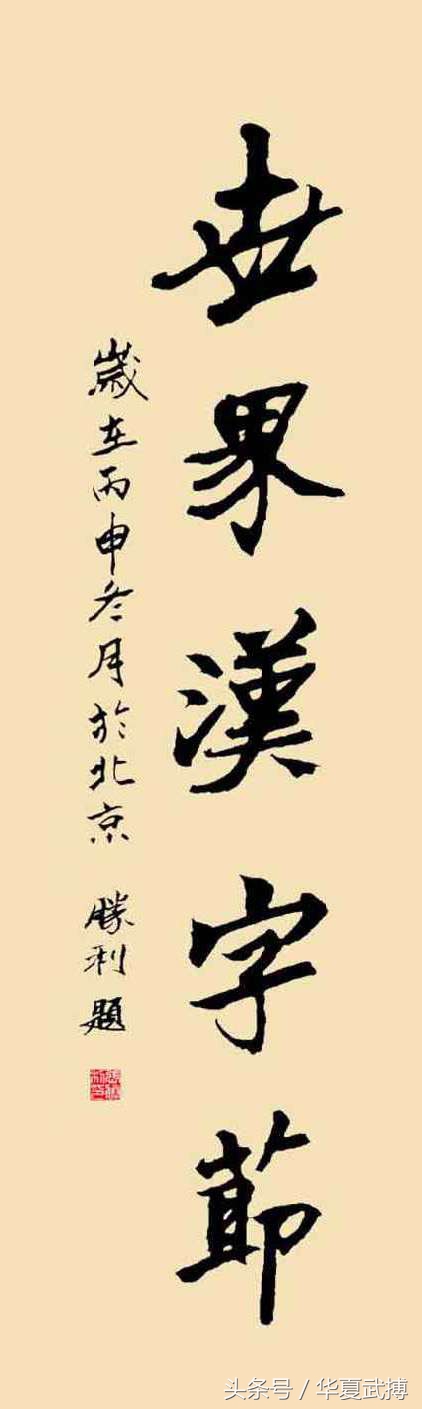 世界漢字節
歲在丙申冬月於北京 勝利題
头条号 / 华夏武搏